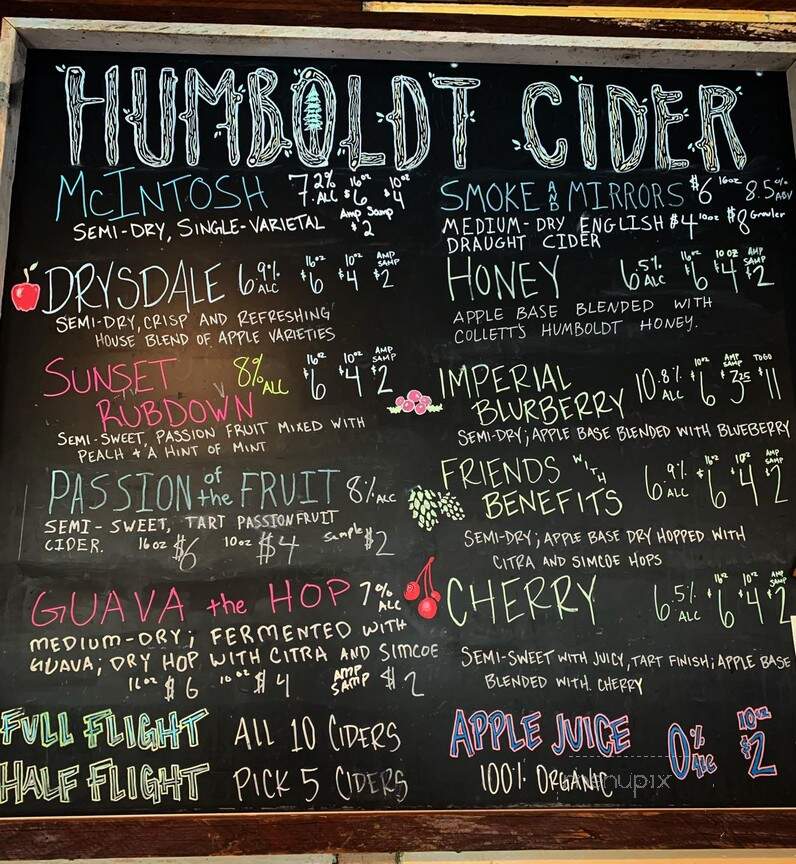 HUMBOLDT CIDER
McINTOSH 7.2% ALC 16oz $6 10oz $4
SEMI-DRY, SINGLE-VARIETAL Amp Samp $2
DRYSDALE 6.9% ALC 16oz $6 10oz $4 AMP SAMP $2
SEMI-DRY, CRISP AND REFRESHING
HOUSE BLEND OF APPLE VARIETIES
SUNSET RUBDOWN 8% ALC 16oz $6 10oz $4 AMP SAMP $2
SEMI-SWEET, PASSION FRUIT MIXED WITH
PEACH + A HINT OF MINT
PASSION of the FRUIT 8% ALC
SEMI-SWEET, TART PASSIONFRUIT
CIDER. 16oz $6 10oz $4 Sample $2
GUAVA the HOP 7% ALC
MEDIUM-DRY; FERMENTED WITH
GUAVA; DRY HOP WITH CITRA AND SIMCOE
16oz $6 10oz $4 AMP SAMP $2
FULL FLIGHT ALL 10 CIDERS
HALF FLIGHT PICK 5 CIDERS
SMOKE AND MIRRORS $6 16oz 8.5% ABV
MEDIUM-DRY ENGLISH $4 10oz $8 Growler
DRAUGHT CIDER
HONEY 6.5% ALC 16oz $6 10oz $4 AMP SAMP $2
APPLE BASE BLENDED WITH
COLLETT'S HUMBOLDT HONEY.
IMPERIAL BLURBERRY 10.8% ALC 10oz $6 AMP SAMP $3.25 TOGO $11
SEMI-DRY; APPLE BASE BLENDED WITH BLUEBERRY
FRIENDS WITH BENEFITS 6.9% ALC 16oz $6 10oz $4 AMP SAMP $2
SEMI-DRY; APPLE BASE DRY HOPPED WITH
CITRA AND SIMCOE HOPS
CHERRY 6.5% ALC 16oz $6 10oz $4 AMP SAMP $2
SEMI-SWEET WITH JUICY, TART FINISH; APPLE BASE
BLENDED WITH CHERRY
APPLE JUICE 0% ALC 10oz $2
100% ORGANIC
menupix